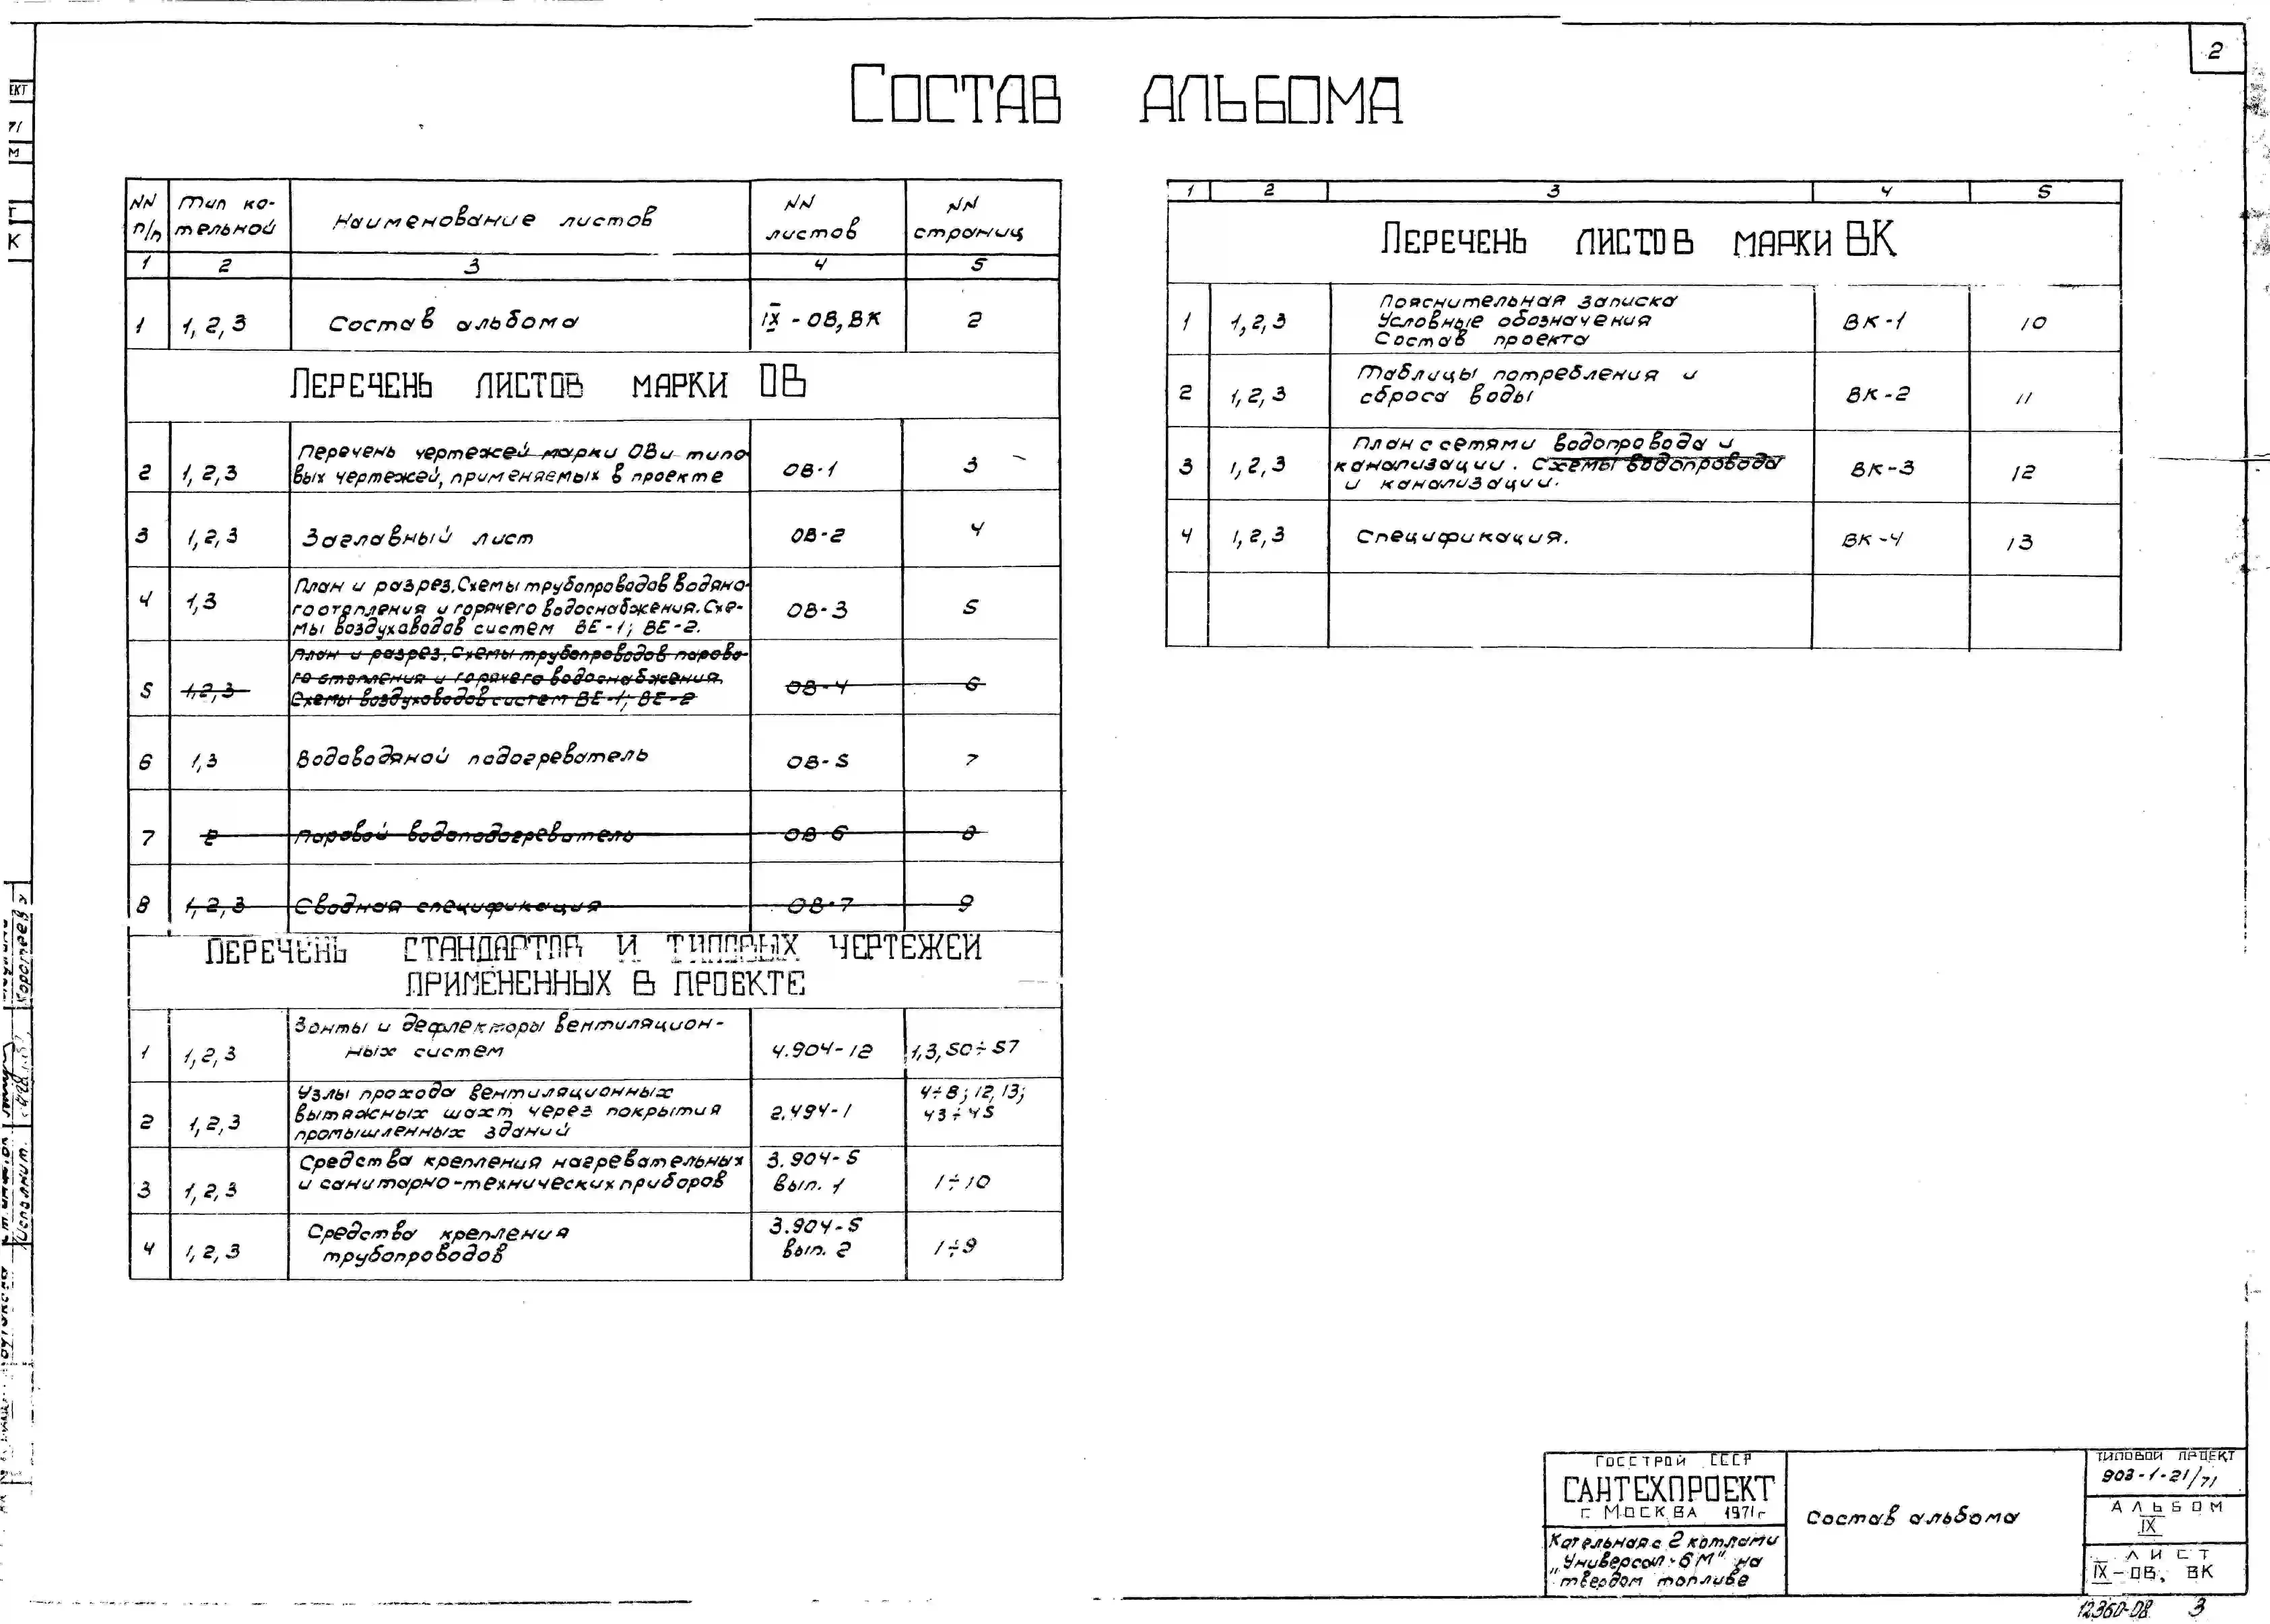 2
Состав альбома
NN п/п
Тип котельной
Наименование листов
NN листов
NN страниц
1 2 3 4 5
1 1,2,3 Состав альбома IX-ОВ,ВК 2
Перечень листов марки ОВ
Перечень чертежей марки ОВ и типо
2 1,2,3 вых чертежей, применяемых в проекте ОВ-1 3
3 1,2,3 Заглавный лист ОВ-2 4
План и разрез. Схемы трубопроводов водяно-
4 1,3 го отопления и горячего водоснабжения. Схе- ОВ-3 5
мы воздуховодов систем ВЕ-1; ВЕ-2.
План и разрез. Схемы трубопроводов парово-
5 1,2,3 го отопления и горячего водоснабжения. ОВ-4 6
Схемы воздуховодов систем ВЕ-1; ВЕ-2
6 1,3 Водоводяной подогреватель ОВ-5 7
7 2 Паровой водоподогреватель ОВ-6 8
8 1,2,3 Сводная спецификация ОВ-7 9
Перечень стандартов и типовых чертежей
примененных в проекте
Зонты и дефлекторы вентиляцион-
1 1,2,3 ных систем 4.904-12 1,3,50÷57
Узлы прохода вентиляционных 4÷8; 12,13;
2 1,2,3 вытяжных шахт через покрытия 2.494-1 43÷45
промышленных зданий
Средства крепления нагревательных 3.904-5
3 1,2,3 и санитарно-технических приборов вып. 1 1÷10
Средства крепления 3.904-5
4 1,2,3 трубопроводов вып. 2 1÷9
1 2 3 4 5
Перечень листов марки ВК
Пояснительная записка
1 1,2,3 Условные обозначения ВК-1 10
Состав проекта
Таблицы потребления и
2 1,2,3 сброса воды ВК-2 11
План с сетями водопровода и
3 1,2,3 канализации. Схемы водопровода ВК-3 12
и канализации.
4 1,2,3 Спецификация. ВК-4 13
Госстрой СССР
САНТЕХПРОЕКТ
г. Москва 1971г
Котельная с 2 котлами
"Универсал-6М" на
твердом топливе
Состав альбома
Типовой проект
903-1-21/71
Альбом
IX
Лист
IX-ОВ, ВК
12360-08 3
ЕКТ
71
М
Г
К
Коротеев
Исполнит.